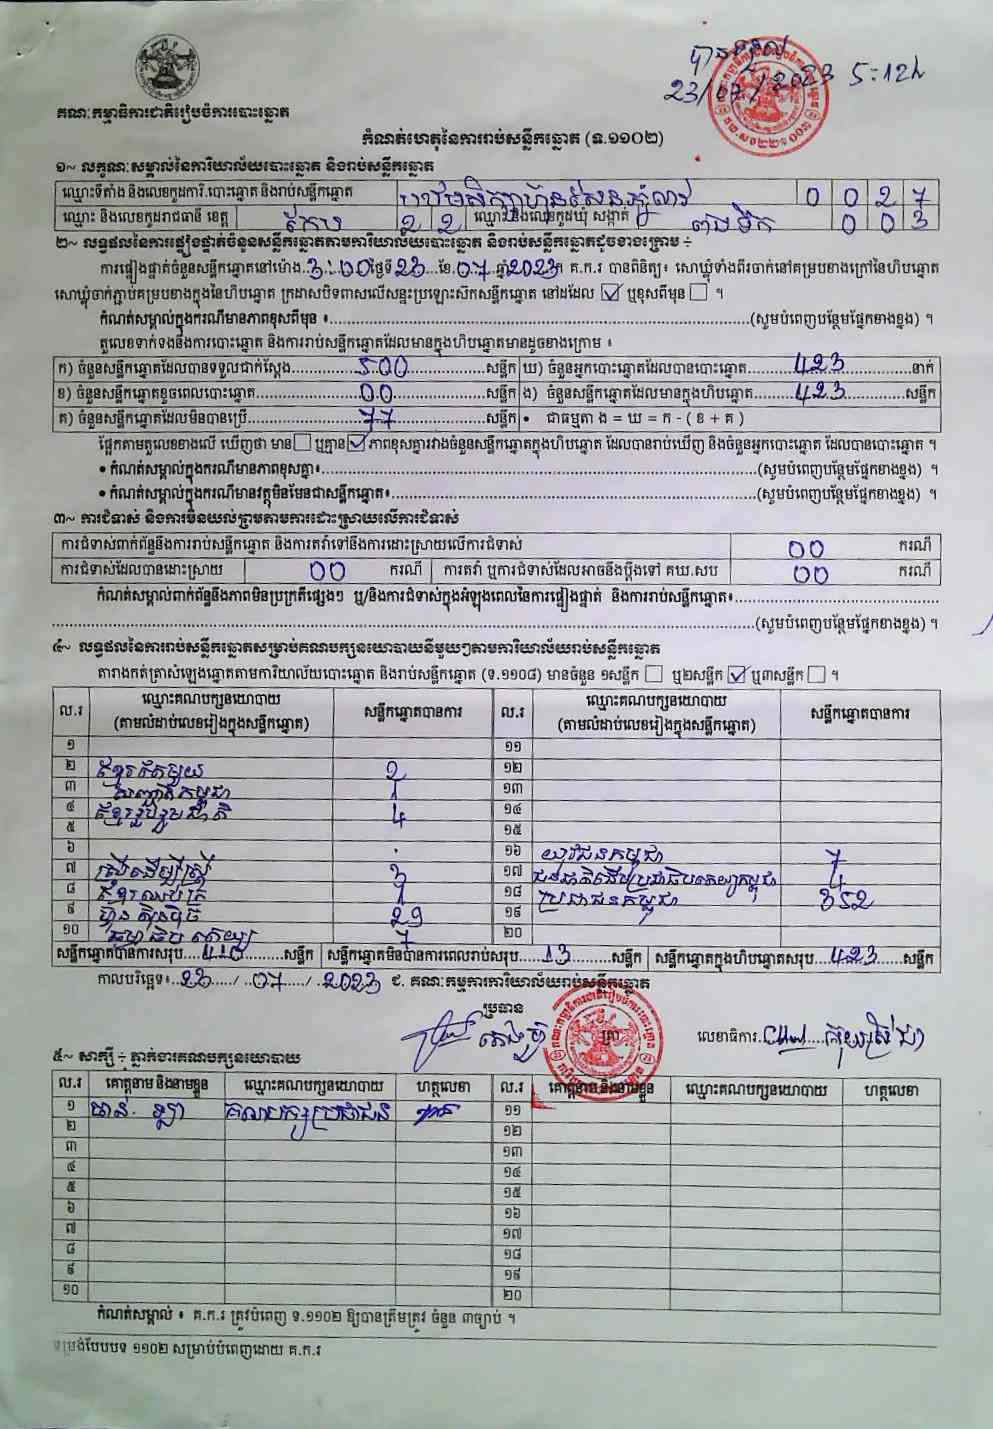 បានទទួល
23/07/2023 5:12h
គណៈកម្មាធិការជាតិរៀបចំការបោះឆ្នោត
កំណត់ហេតុនៃការរាប់សន្លឹកឆ្នោត (ទ.១១០២)
១~ លក្ខណៈសម្គាល់នៃការិយាល័យបោះឆ្នោត និងរាប់សន្លឹកឆ្នោត
ឈ្មោះទីតាំង និងលេខកូដការិ.បោះឆ្នោត និងរាប់សន្លឹកឆ្នោត 0 0 2 7
ឈ្មោះ និងលេខកូដរាជធានី ខេត្ត កែប 2 2 ឈ្មោះ និងលេខកូដឃុំ សង្កាត់ 0 0 3
២~ លទ្ធផលនៃការផ្ទៀងផ្ទាត់ចំនួនសន្លឹកឆ្នោតតាមការិយាល័យបោះឆ្នោត និងរាប់សន្លឹកឆ្នោតដូចខាងក្រោម ÷
ការផ្ទៀងផ្ទាត់ចំនួនសន្លឹកឆ្នោតនៅម៉ោង..3:00ថ្ងៃទី23...ខែ.07..ឆ្នាំ2023 គ.ក.រ បានពិនិត្យ៖ សោឃ្លុំទាំងពីរចាក់នៅគម្របខាងក្រៅនៃហិបឆ្នោត
សោឃ្លុំចាក់ភ្ជាប់គម្របខាងក្នុងនៃហិបឆ្នោត ក្រដាសបិទពាសលើសន្ទះប្រឡោះស៊កសន្លឹកឆ្នោត នៅដដែល ☑ ឬខុសពីមុន ☐ ។
កំណត់សម្គាល់ក្នុងករណីមានភាពខុសពីមុន ៖..........(សូមបំពេញបន្ថែមផ្នែកខាងខ្នង) ។
តួលេខទាក់ទងនឹងការបោះឆ្នោត និងការរាប់សន្លឹកឆ្នោតដែលមានក្នុងហិបឆ្នោតមានដូចខាងក្រោម ៖
ក) ចំនួនសន្លឹកឆ្នោតដែលបានទទួលជាក់ស្តែង..........500..........សន្លឹក ឃ) ចំនួនអ្នកបោះឆ្នោតដែលបានបោះឆ្នោត..........423..........នាក់
ខ) ចំនួនសន្លឹកឆ្នោតខូចពេលបោះឆ្នោត..........00..........សន្លឹក ង) ចំនួនសន្លឹកឆ្នោតដែលមានក្នុងហិបឆ្នោត..........423..........សន្លឹក
គ) ចំនួនសន្លឹកឆ្នោតដែលមិនបានប្រើ..........77..........សន្លឹក • ជាធម្មតា ង = ឃ = ក - ( ខ + គ )
ផ្អែកតាមតួលេខខាងលើ ឃើញថា មាន ☐ ឬគ្មាន ☑ ភាពខុសគ្នារវាងចំនួនសន្លឹកឆ្នោតក្នុងហិបឆ្នោត ដែលបានរាប់ឃើញ និងចំនួនអ្នកបោះឆ្នោត ដែលបានបោះឆ្នោត ។
• កំណត់សម្គាល់ក្នុងករណីមានភាពខុសគ្នា៖..........(សូមបំពេញបន្ថែមផ្នែកខាងខ្នង) ។
• កំណត់សម្គាល់ក្នុងករណីមានវត្ថុមិនមែនជាសន្លឹកឆ្នោត៖..........(សូមបំពេញបន្ថែមផ្នែកខាងខ្នង) ។
៣~ ការជំទាស់ និងការមិនយល់ព្រមតាមការដោះស្រាយលើការជំទាស់
ការជំទាស់ពាក់ព័ន្ធនឹងការរាប់សន្លឹកឆ្នោត និងការតវ៉ាទៅនឹងការដោះស្រាយលើការជំទាស់ 00 ករណី
ការជំទាស់ដែលបានដោះស្រាយ 00 ករណី ការតវ៉ា ឬការជំទាស់ដែលអាចនឹងប្តឹងទៅ គឃ.សប 00 ករណី
កំណត់សម្គាល់ពាក់ព័ន្ធនឹងភាពមិនប្រក្រតីផ្សេងៗ ឬ/និងការជំទាស់ក្នុងអំឡុងពេលនៃការផ្ទៀងផ្ទាត់ និងការរាប់សន្លឹកឆ្នោត៖..........
..........(សូមបំពេញបន្ថែមផ្នែកខាងខ្នង) ។
៤~ លទ្ធផលនៃការរាប់សន្លឹកឆ្នោតសម្រាប់គណបក្សនយោបាយនីមួយៗតាមការិយាល័យរាប់សន្លឹកឆ្នោត
តារាងកត់ត្រាសំឡេងឆ្នោតតាមការិយាល័យបោះឆ្នោត និងរាប់សន្លឹកឆ្នោត (ទ.១១០៨) មានចំនួន ១សន្លឹក ☐ ឬ២សន្លឹក ☑ ឬ៣សន្លឹក ☐ ។
ល.រ ឈ្មោះគណបក្សនយោបាយ សន្លឹកឆ្នោតបានការ ល.រ ឈ្មោះគណបក្សនយោបាយ សន្លឹកឆ្នោតបានការ
(តាមលំដាប់លេខរៀងក្នុងសន្លឹកឆ្នោត) (តាមលំដាប់លេខរៀងក្នុងសន្លឹកឆ្នោត)
១ ១១
២ ខ្មែរតែមួយ 2 ១២
៣ សញ្ជាតិកម្ពុជា 1 ១៣
៤ ខ្មែររួបរួមជាតិ 4 ១៤
៥ ១៥
៦ ១៦ យុវជនកម្ពុជា 7
៧ ស្ត្រីដើម្បីស្ត្រី 3 ១៧ ជនជាតិដើមប្រជាធិបតេយ្យកម្ពុជា 4
៨ ខ្មែរឈប់ក្រ 1 ១៨ ប្រជាជនកម្ពុជា 352
៩ ហ៊្វុនស៊ិនប៉ិច 29 ១៩
១០ ធម្មាធិបតេយ្យ 7 ២០
សន្លឹកឆ្នោតបានការសរុប....410....សន្លឹក សន្លឹកឆ្នោតមិនបានការពេលរាប់សរុប....13....សន្លឹក សន្លឹកឆ្នោតក្នុងហិបឆ្នោតសរុប...423...សន្លឹក
កាលបរិច្ឆេទ៖..23...../ ..07...../ ..2023 ជ. គណៈកម្មការការិយាល័យរាប់សន្លឹកឆ្នោត
ប្រធាន
ត្រា
លេខាធិការ
៥~ សាក្សី ÷ ភ្នាក់ងារគណបក្សនយោបាយ
ល.រ គោត្តនាម និងនាមខ្លួន ឈ្មោះគណបក្សនយោបាយ ហត្ថលេខា ល.រ គោត្តនាម និងនាមខ្លួន ឈ្មោះគណបក្សនយោបាយ ហត្ថលេខា
១ គណបក្សប្រជាជន ១១
២ ១២
៣ ១៣
៤ ១៤
៥ ១៥
៦ ១៦
៧ ១៧
៨ ១៨
៩ ១៩
១០ ២០
កំណត់សម្គាល់ ៖ គ.ក.រ ត្រូវបំពេញ ទ.១១០២ ឱ្យបានត្រឹមត្រូវ ចំនួន ៣ច្បាប់ ។
ទម្រង់បែបបទ ១១០២ សម្រាប់បំពេញដោយ គ.ក.រ